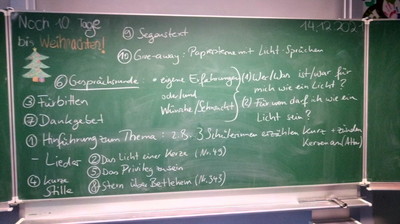 Noch 10 Tage
bis Weihnachten!
14.12.202
⑨ Segenstext
⑩ Give-away: Papiersterne mit Licht-Sprüchen
⑥ Gesprächsrunde
• eigene Erfahrungen
oder/und
Wünsche/Sehnsucht
(1) Wer/Was ist/war für
mich wie ein Licht?
(2) Für wen darf ich wie ein
Licht sein?
③ Fürbitten
⑦ Dankgebet
① Hinführung zum Thema: z.B. 3 Schülerinnen erzählen kurz + zünden
Kerzen an (Altar)
- Lieder
② Das Licht einer Kerze (Nr. 49)
⑤ Das Privileg zu sein
④ kurze
Stille
⑧ Stern über Betlehem (Nr. 343)